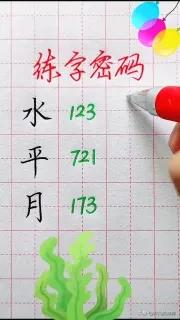 练字密码
水 123
平 721
月 173